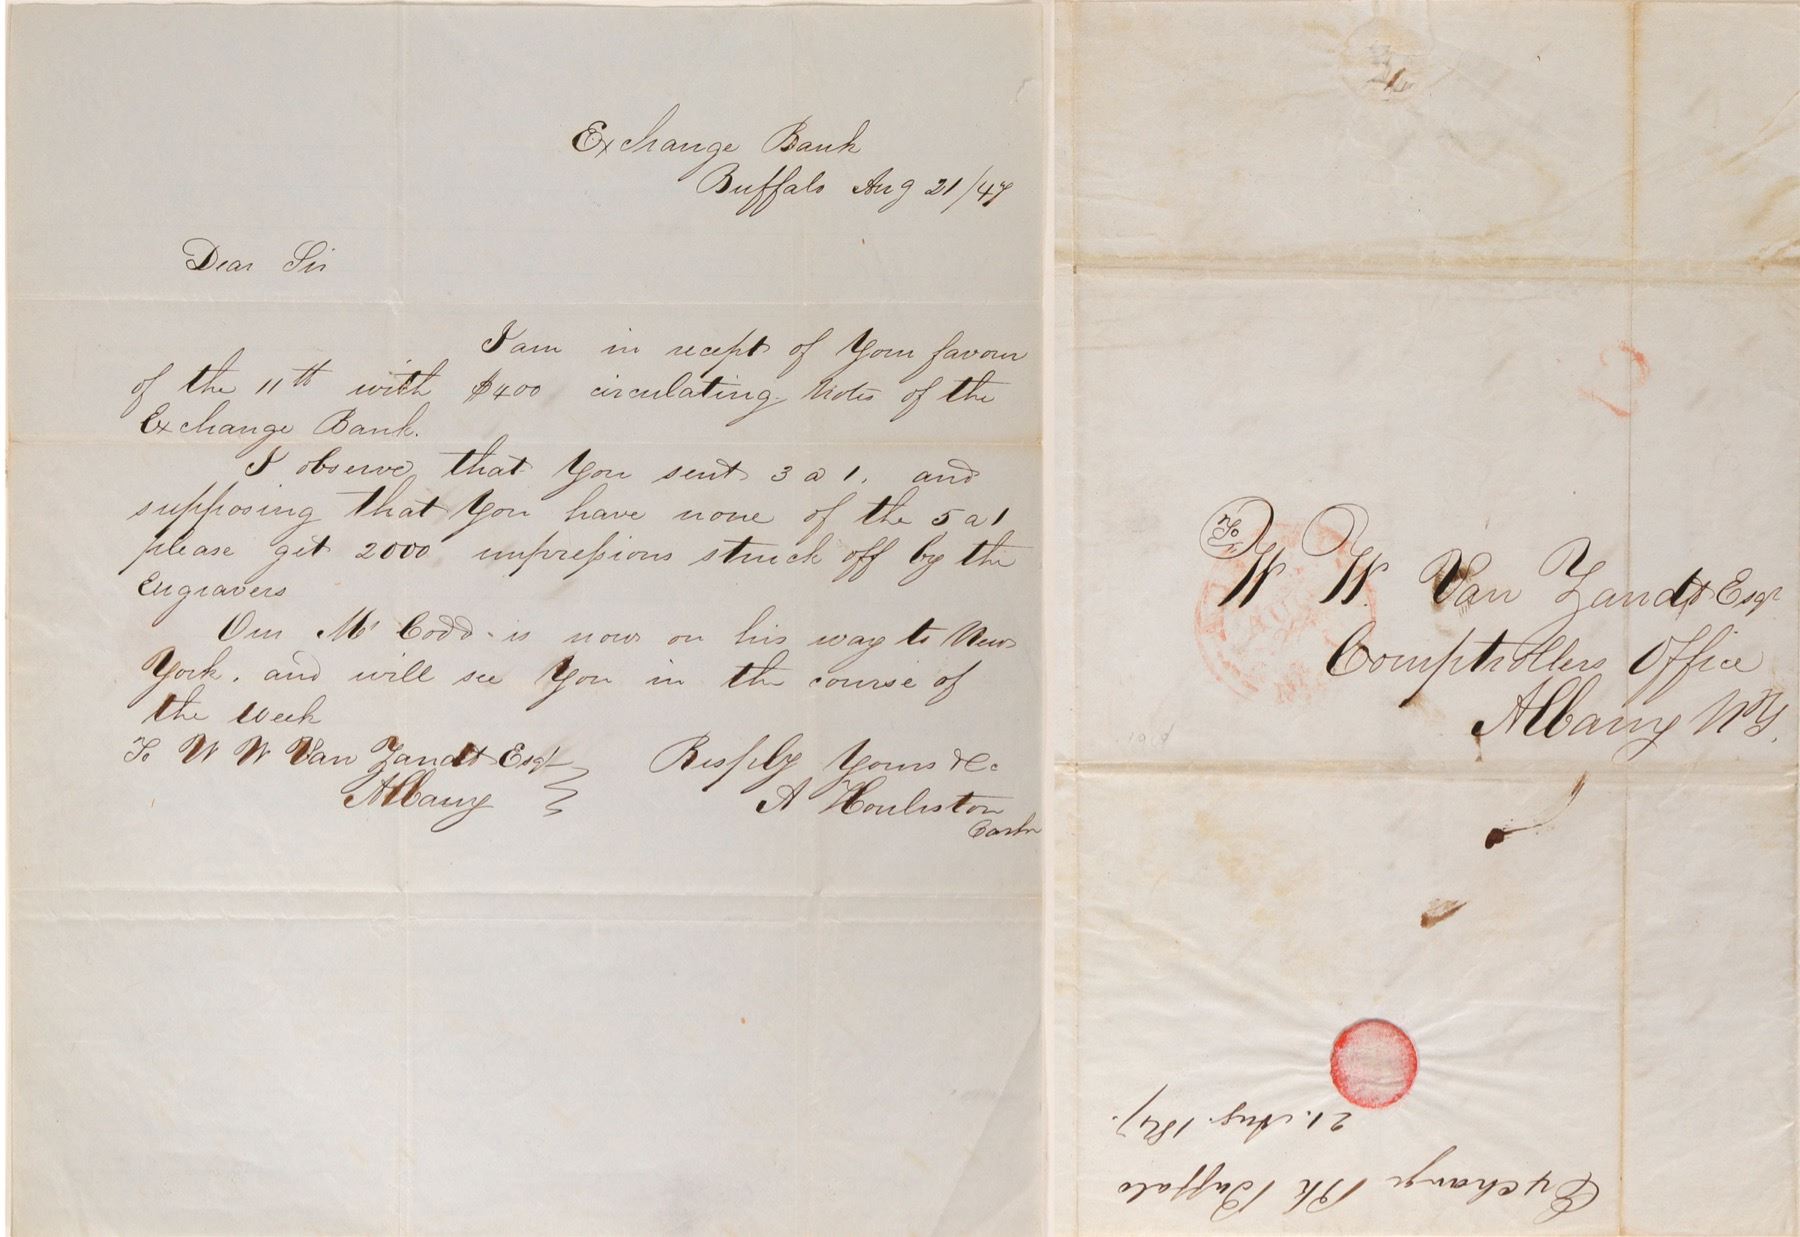 Exchange Bank
Buffalo Aug 21/47
Dear Sir
I am in recept of Your favour
of the 11th with $400 circulating Notes of the
Exchange Bank.
I observe that You sent 3 a 1. and
supposing that You have none of the 5 a 1
please get 2000 impressions struck off by the
Engravers
Our Mr Codd is now on his way to New
York. and will see You in the course of
the Week
To W W Van Zandt Esqr
Albany
Resply Yours &c
A Houliston
Cashr
To
W W. Van Zandt Esqr
Comptrollers Office
Albany NY.
Exchange Bk Buffalo
21. Aug. 1847.